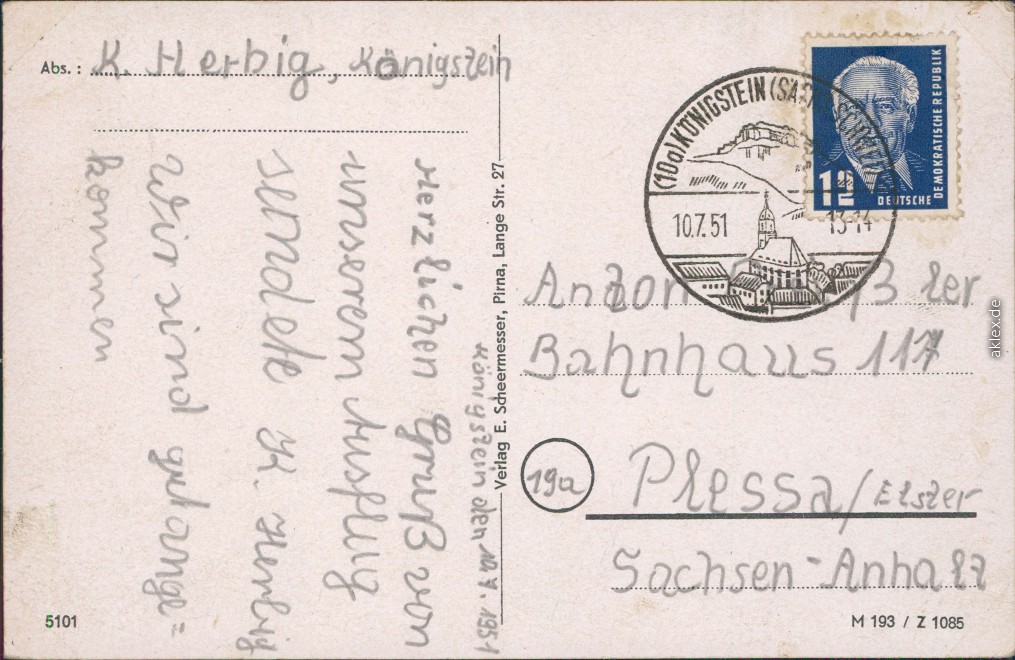 Abs.: K. Herbig, Königstein
Königstein den 10. 7. 1951
Herzlichen Gruß von
unserem Ausflug
sendete K. Herbig
Wir sind gut ange=
kommen
Verlag E. Scheermesser, Pirna, Lange Str. 27
(10a) KÖNIGSTEIN (SÄCHS. SCHWEIZ)
10.7.51
13-14
12
DEUTSCHE
DEMOKRATISCHE REPUBLIK
Bahnhaus 117
19a
Plessa/Elster
Sachsen-Anhalt
5101
M 193 / Z 1085
aklex.de